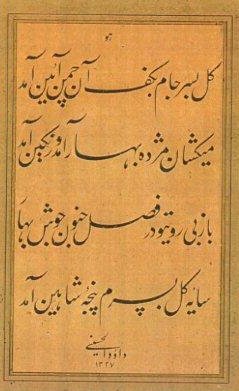 هو
گل بسر جام بکف آن چمن آئین آمد
میکشان مژده بهار آمد و رنگین آمد
باز بی روی تو در فصل جنون جوش بهار
سایه گل بسرم پنجه شاهین آمد
داود الحسینی
۱۳۲۷